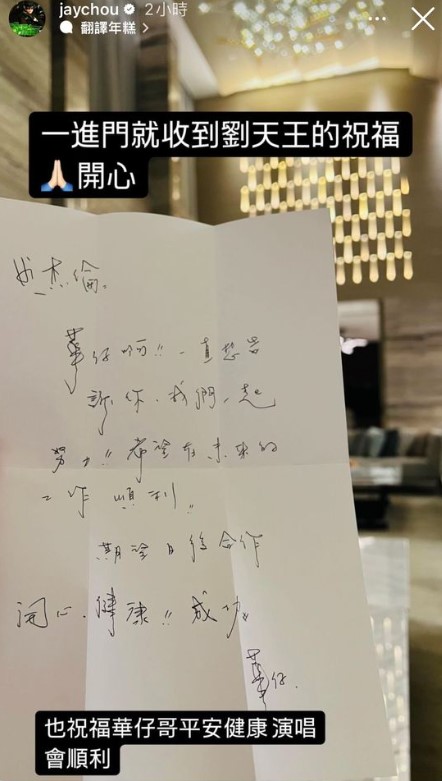 jaychou 2小時
翻譯年糕 >
一進門就收到劉天王的祝福
🙏🏻開心
杰倫。
華仔啊!!一直想告
訴你.我們一起
努力!!希望在未來的
工作順利!!
期望日後合作
開心.健康!!成功!!
華仔.
也祝福華仔哥平安健康 演唱
會順利